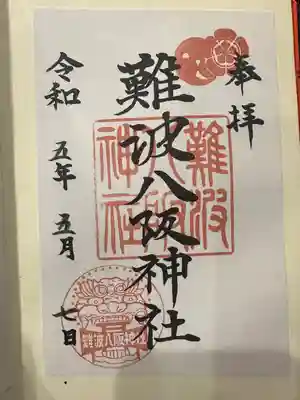 奉拝
難波八阪神社
難波八阪神社
令和五年五月七日
難波八阪神社